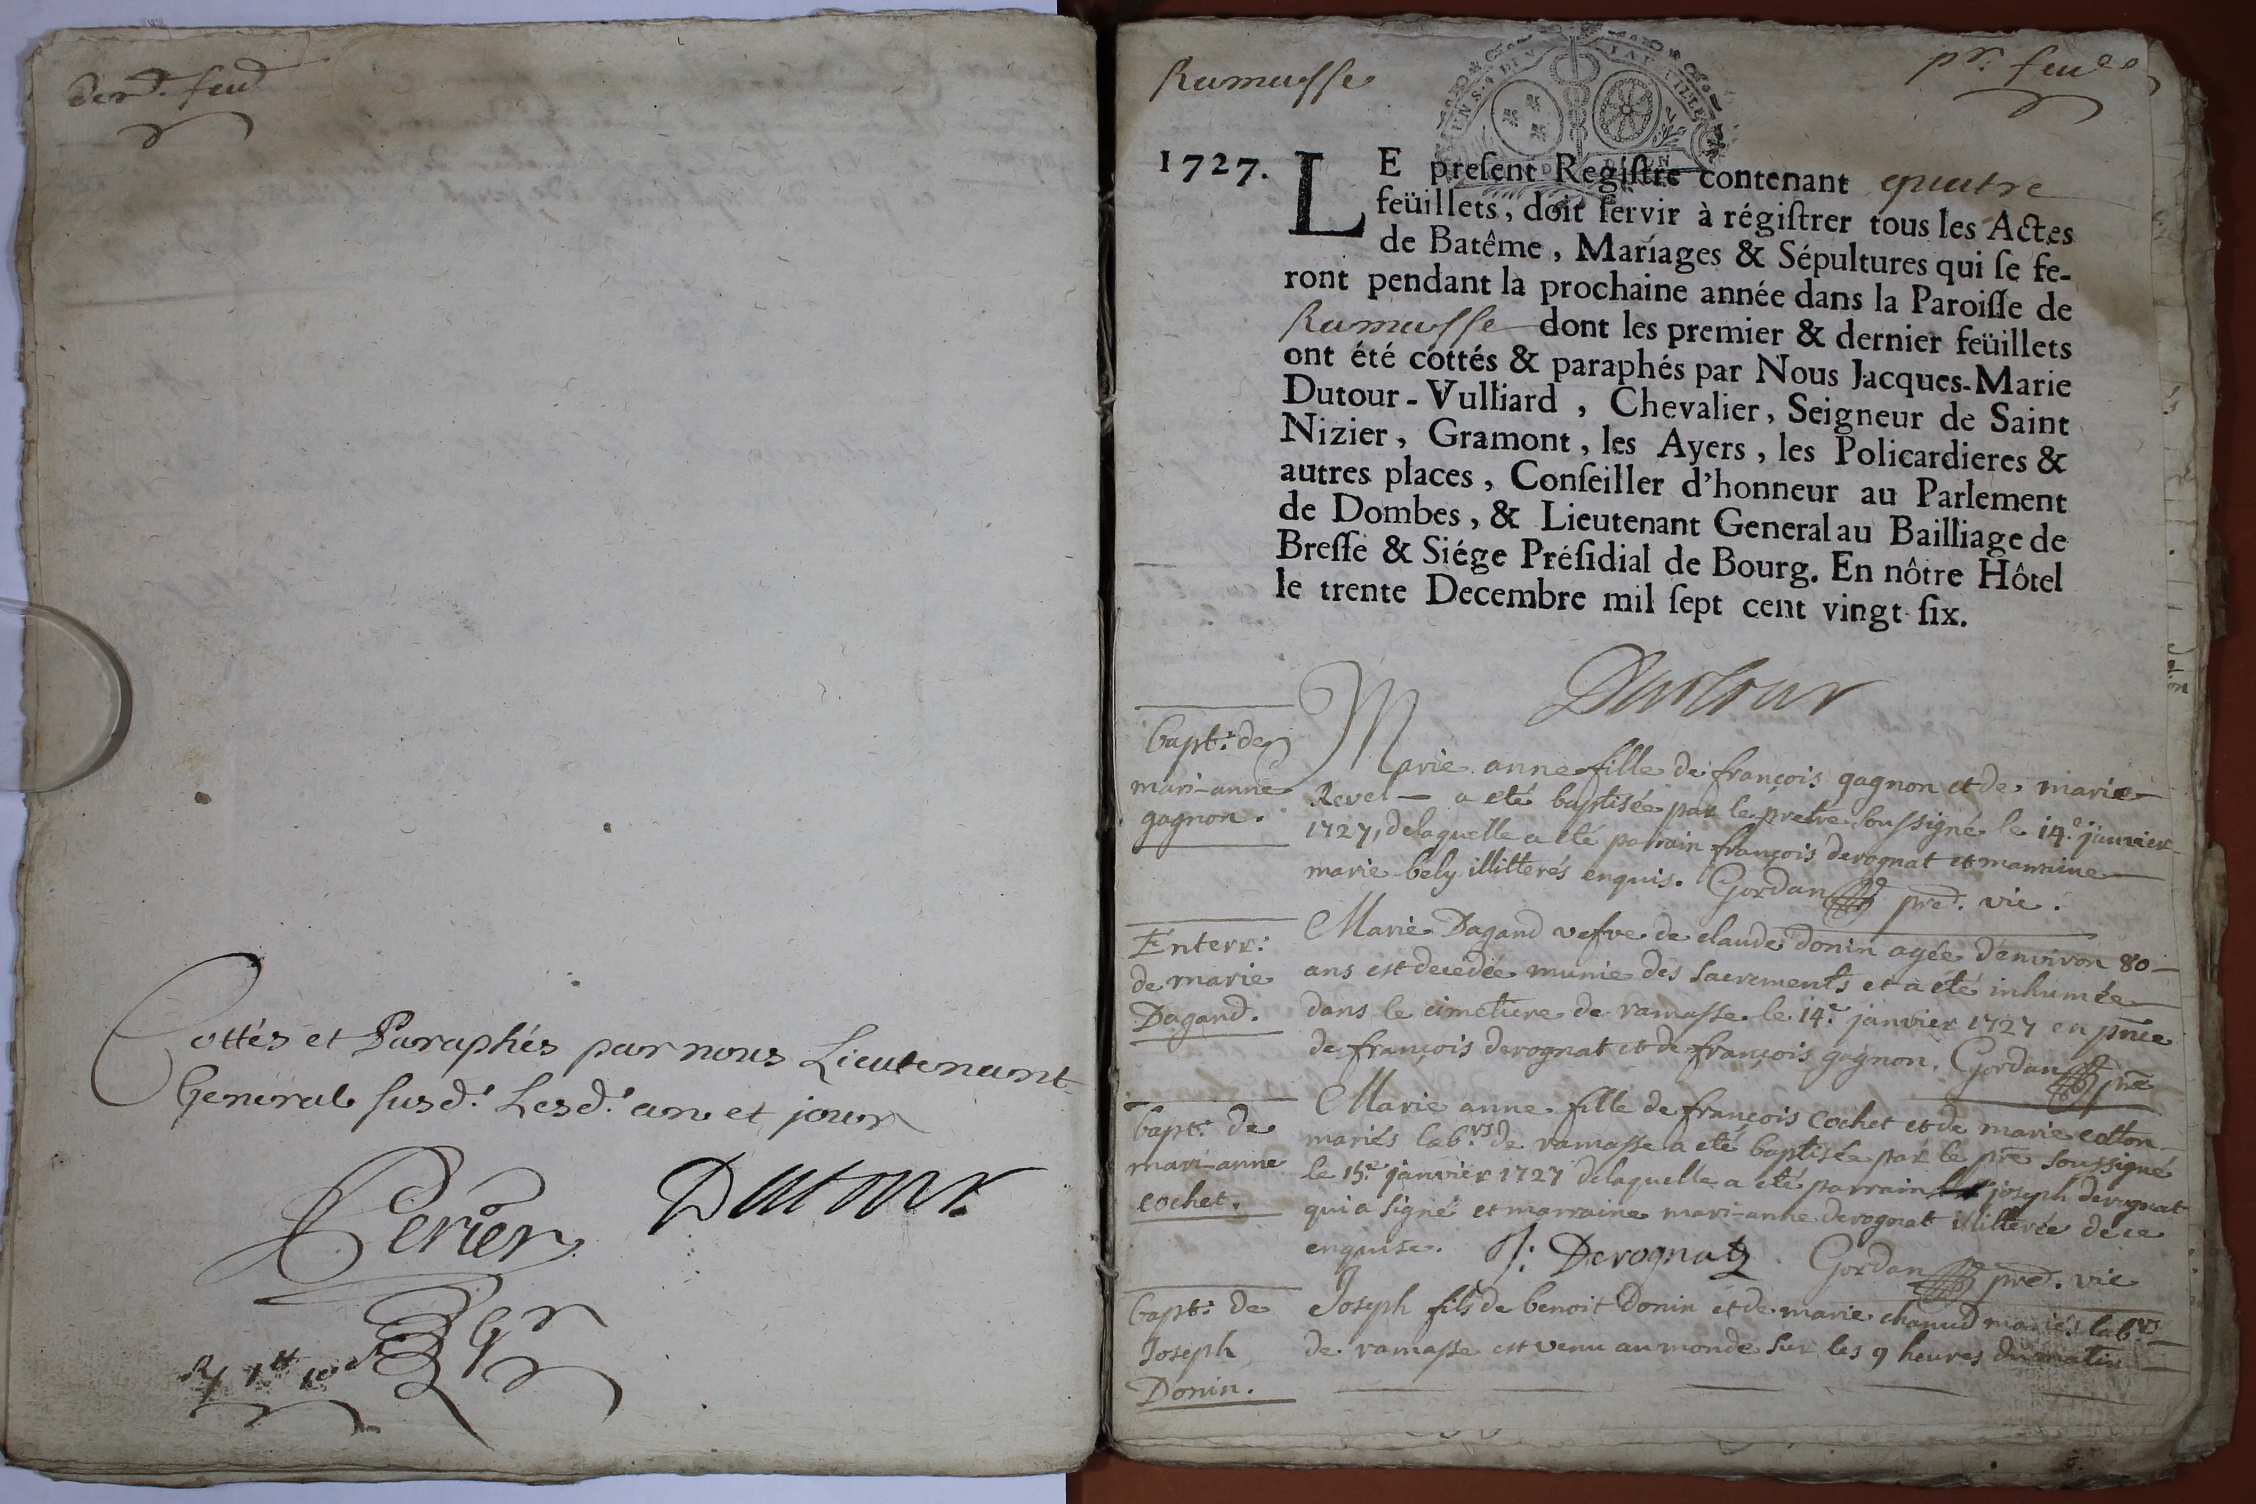 dern.r feu.et
Cottés et Paraphés par nous Lieutenant
General susd.t Lesd.t an et jour
Perier Dutour
Ramasse
pr. feu.et
1727.
LE preſent Regiſtre contenant quatre
feüillets, doit ſervir à régiſtrer tous les Actes
de Batême, Mariages & Sépultures qui ſe fe-
ront pendant la prochaine année dans la Paroiſſe de
Ramasse dont les premier & dernier feüillets
ont été cottés & paraphés par Nous Jacques-Marie
Dutour-Vulliard, Chevalier, Seigneur de Saint
Nizier, Gramont, les Ayers, les Policardieres &
autres places, Conſeiller d'honneur au Parlement
de Dombes, & Lieutenant General au Bailliage de
Breſſe & Siége Préſidial de Bourg. En nôtre Hôtel
le trente Decembre mil ſept cent vingt-ſix.
Dutour
bapt: de
mari-anne
gagnon.
Marie anne fille de françois gagnon et de marie
Revel a eté baptisée par le prêtre soussigné le 14.e janvier
1727, delaquelle a eté parrain françois derognat et marraine
marie bely illitterés enquis. Gordan pre. vic.
Enterr:
de marie
Dagand.
Marie Dagand vefve de claude donin agée d'environ 80
ans est decedée munie des sacrements et a été inhumée
dans le cimetiere de ramasse le 14.e janvier 1727 en pnce
de françois derognat et de françois gagnon. Gordan pre
bapt: de
mari-anne
cochet.
Marie anne fille de françois cochet et de marie cotton
mariés lab.rs de ramasse a eté baptisée par le pre soussigné
le 15.e janvier 1727 delaquelle a eté parrain joseph derognat
qui a signé et marraine mari-anne derognat illiterée de ce
enquise. J: Derognat Gordan pre. vic
bapt: de
Joseph
Donin.
Joseph fils de benoit Donin et de marie chanud mariés lab.rs
de ramasse est venu au monde sur les 9 heures du matin